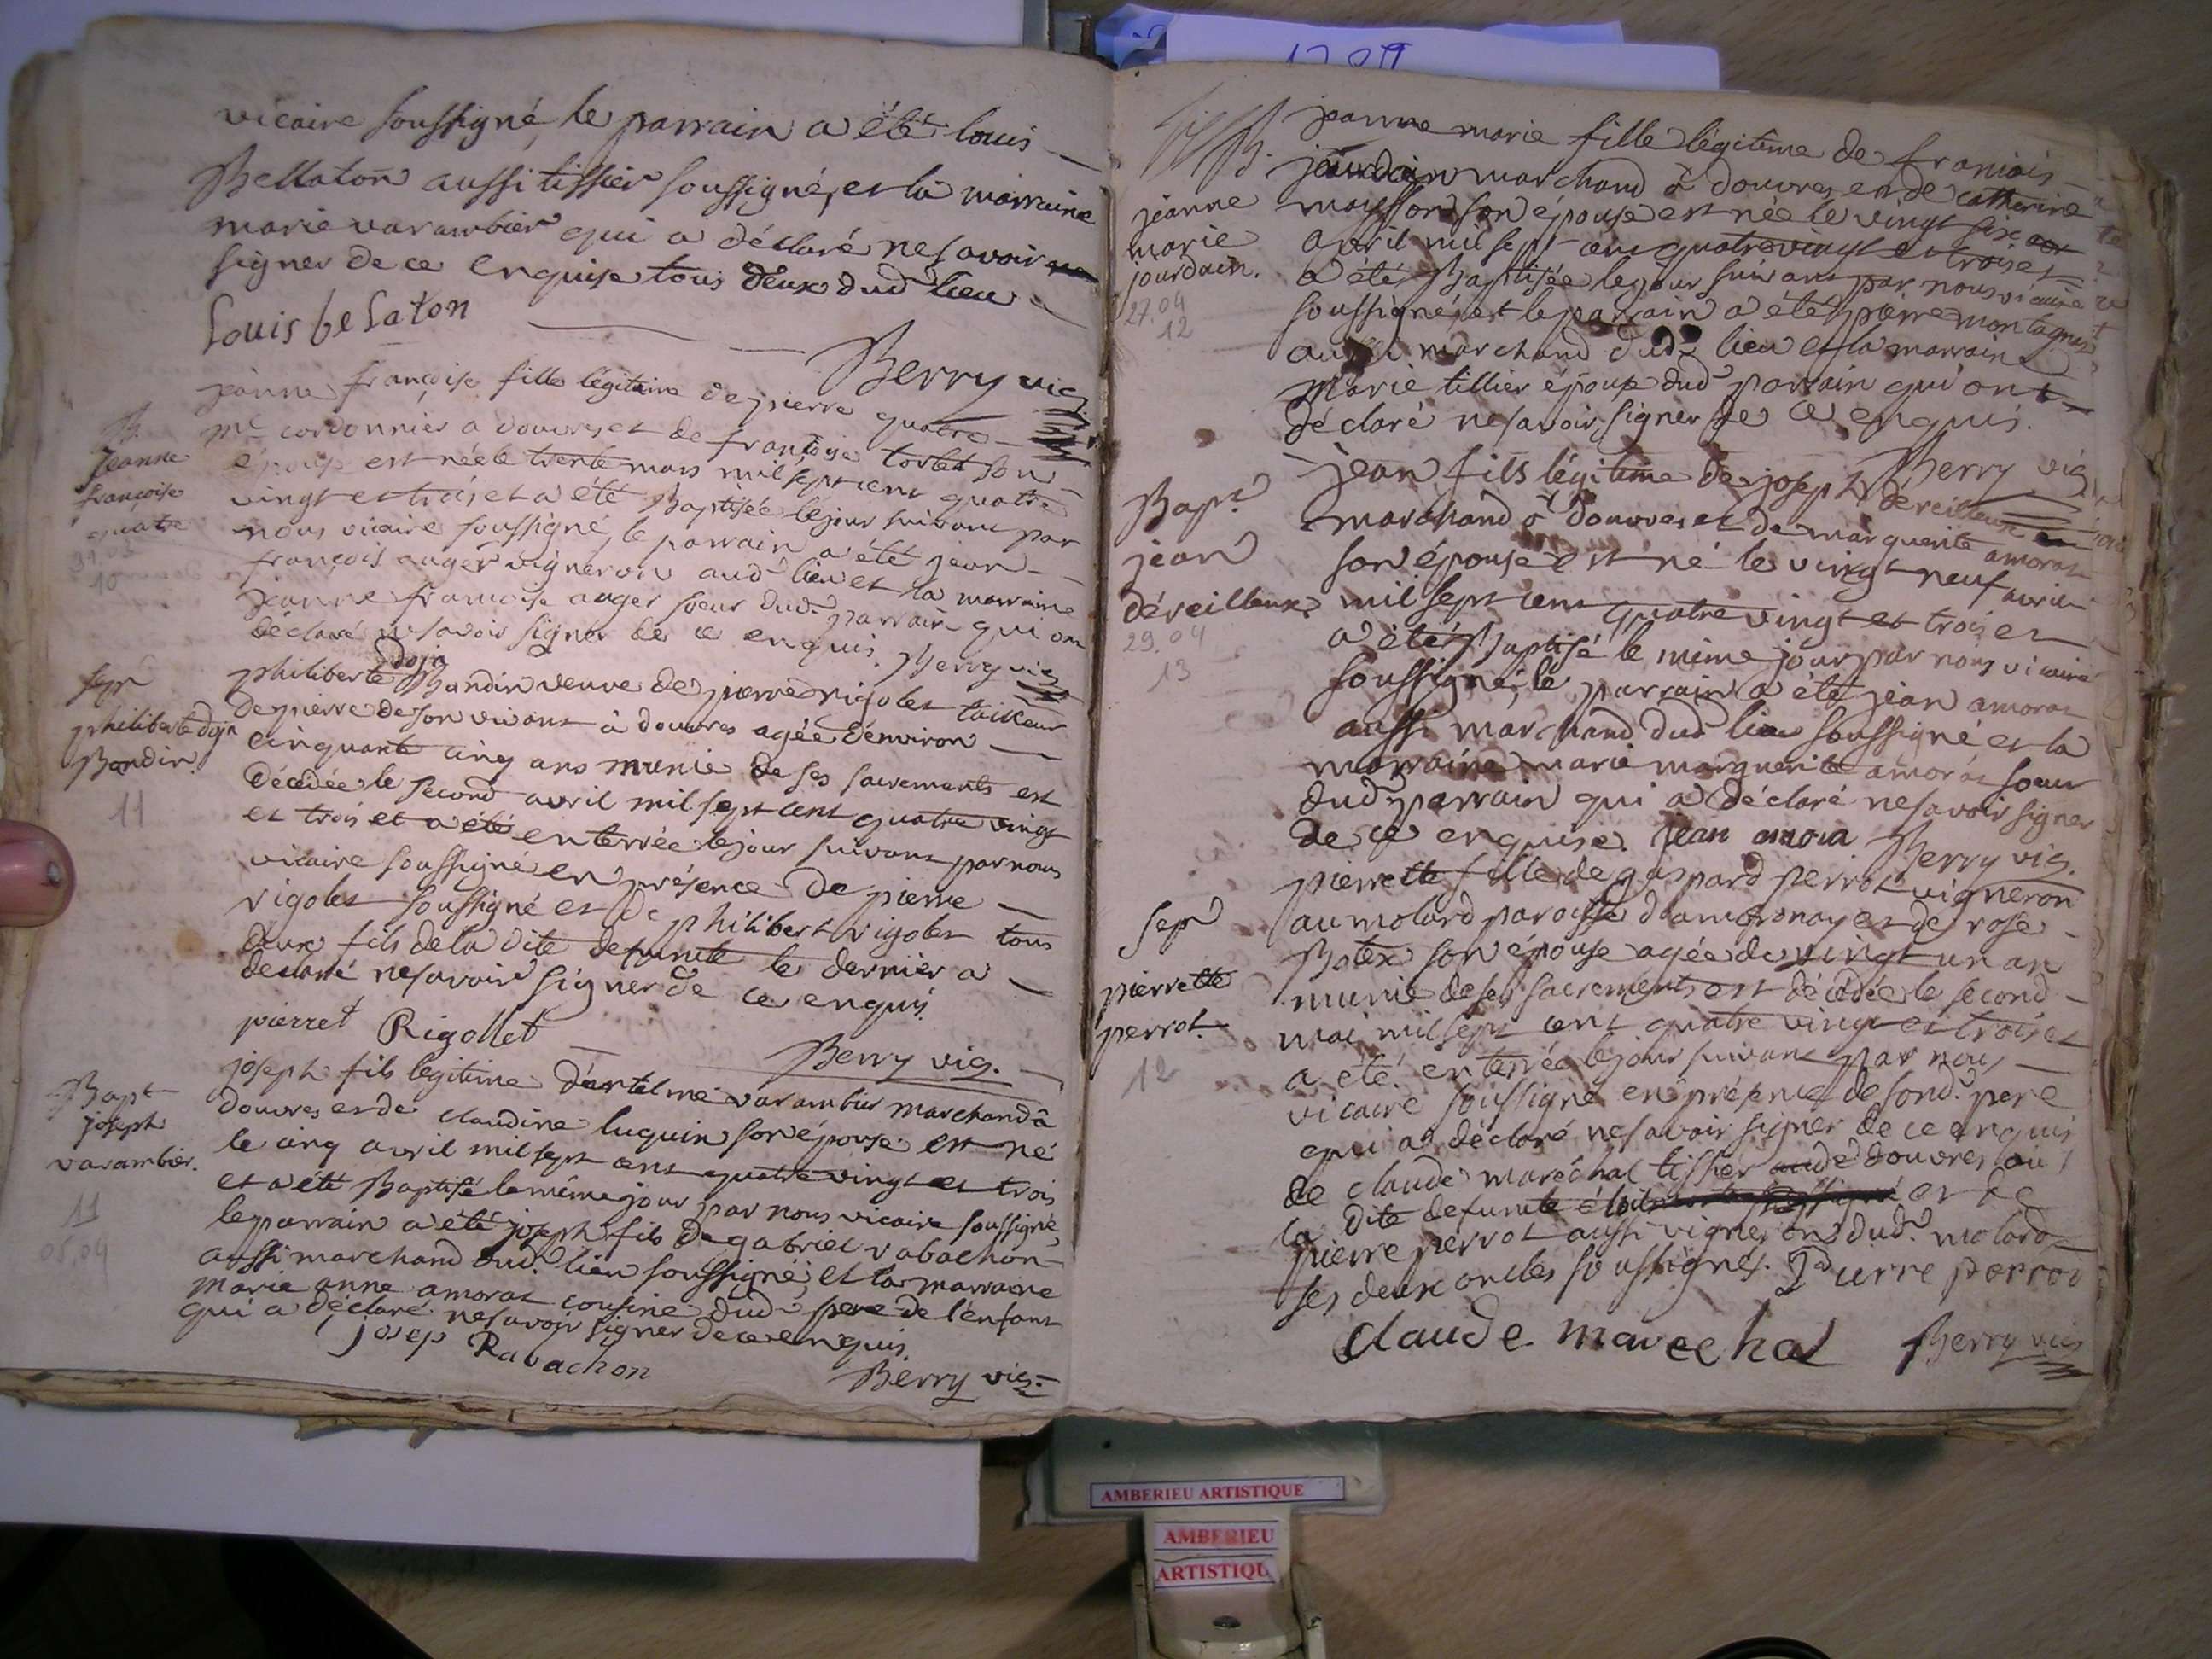 vicaire soussigné, le parrain a été louis
Bellaton aussi tissier soussigné, et la marraine
marie varambier qui a déclaré ne savoir
signer de ce enquise tous deux dud lieu
Louis belaton
Berry vic.
B.
Jeanne
françoise
quatre
31.03
10
jeanne françoise fille légitime de pierre quatre
me cordonnier a douvres et de françoise tostet son
épouse est née le trente mars mil sept cent quatre
vingt et trois et a été Baptisée le jour suivant par
nous vicaire soussigné, le parrain a été jean
françois auger vigneron aud lieu et la marraine
jeanne francoise auger soeur dud. parrain qui ont
déclaré ne savoir signer de ce enquis. Berry vic
sepr
philiberte dojn
Bondin.
11
dojn
philiberte Bondin veuve de pierre rigolet tailleur
de pierre de son vivant à douvres agée d'environ
cinquante cinq ans munie de ses sacrements est
décédée le second avril mil sept cent quatre vingt
et trois et a été enterrée le jour suivant par nous
vicaire soussigné en présence de pierre
rigolet soussigné et de philibert rigolet tous
deux fils de la dite defunte le dernier a
declaré ne savoir signer de ce enquis.
pierret Rigollet
Berry vic.
Bapt
joseph
varambier.
11
05.04
joseph fils légitime d'antelme varambier marchand à
douvres et de claudine luquin son épouse est né
le cinq avril mil sept cent quatre vingt et trois
et a été Baptisé le même jour par nous vicaire soussigné,
le parrain a été joseph fils de gabriel rabachon
aussi marchand dud. lieu soussigné, et la marraine
marie anne amoraz cousine dud pere de l'enfant
qui a déclaré ne savoir signer de ce enquis.
josep Rabachon
Berry vic.
B.
jeanne
marie
jourdain.
27.04
12
jeanne marie fille légitime de francois
jourdain marchand à douvres et de catherine
moisson son épouse est née le vingt six
avril mil sept cent quatre vingt et trois et
a été Baptisée le jour suivant par nous vicaire
soussigné, et le parrain a été pierre montagnat
aussi marchand dud lieu et la marraine
marie tillier épouse dud parrain qui ont
déclaré ne savoir signer de ce enquis.
Berry vic.
Bapt
jean
déreilleux
29.04
13
jean fils légitime de joseph déreilleux
marchand à douvres et de marguerite amoraz
son épouse est né le vingt neuf avril
mil sept cent quatre vingt et trois et
a été Baptisé le même jour par nous vicaire
soussigné, le parrain a été jean amoraz
aussi marchand dud lieu soussigné et la
marraine marie marguerite amoraz soeur
dud parrain qui a déclaré ne savoir signer
de ce enquise. jean amora Berry vic.
sepr
pierrette
perrot.
12
pierrette fille de gaspard perrot vigneron
au molard paroisse d'amoronay et de rose
Botex son épouse agée de vingt un an
munie de ses sacrements est décédée le second
mai mil sept cent quatre vingt et trois et
a été enterrée le jour suivant par nous
vicaire soussigné en présence de sond. pere
qui a déclaré ne savoir signer de ce enquis
de claude maréchal tissier aud douvres où
la dite defunte étoit et de
pierre perrot aussi vigneron dud. molard
ses deux oncles soussignés. Pierre perrot
claude marechal Berry vic
AMBERIEU ARTISTIQUE
AMBERIEU
ARTISTIQU